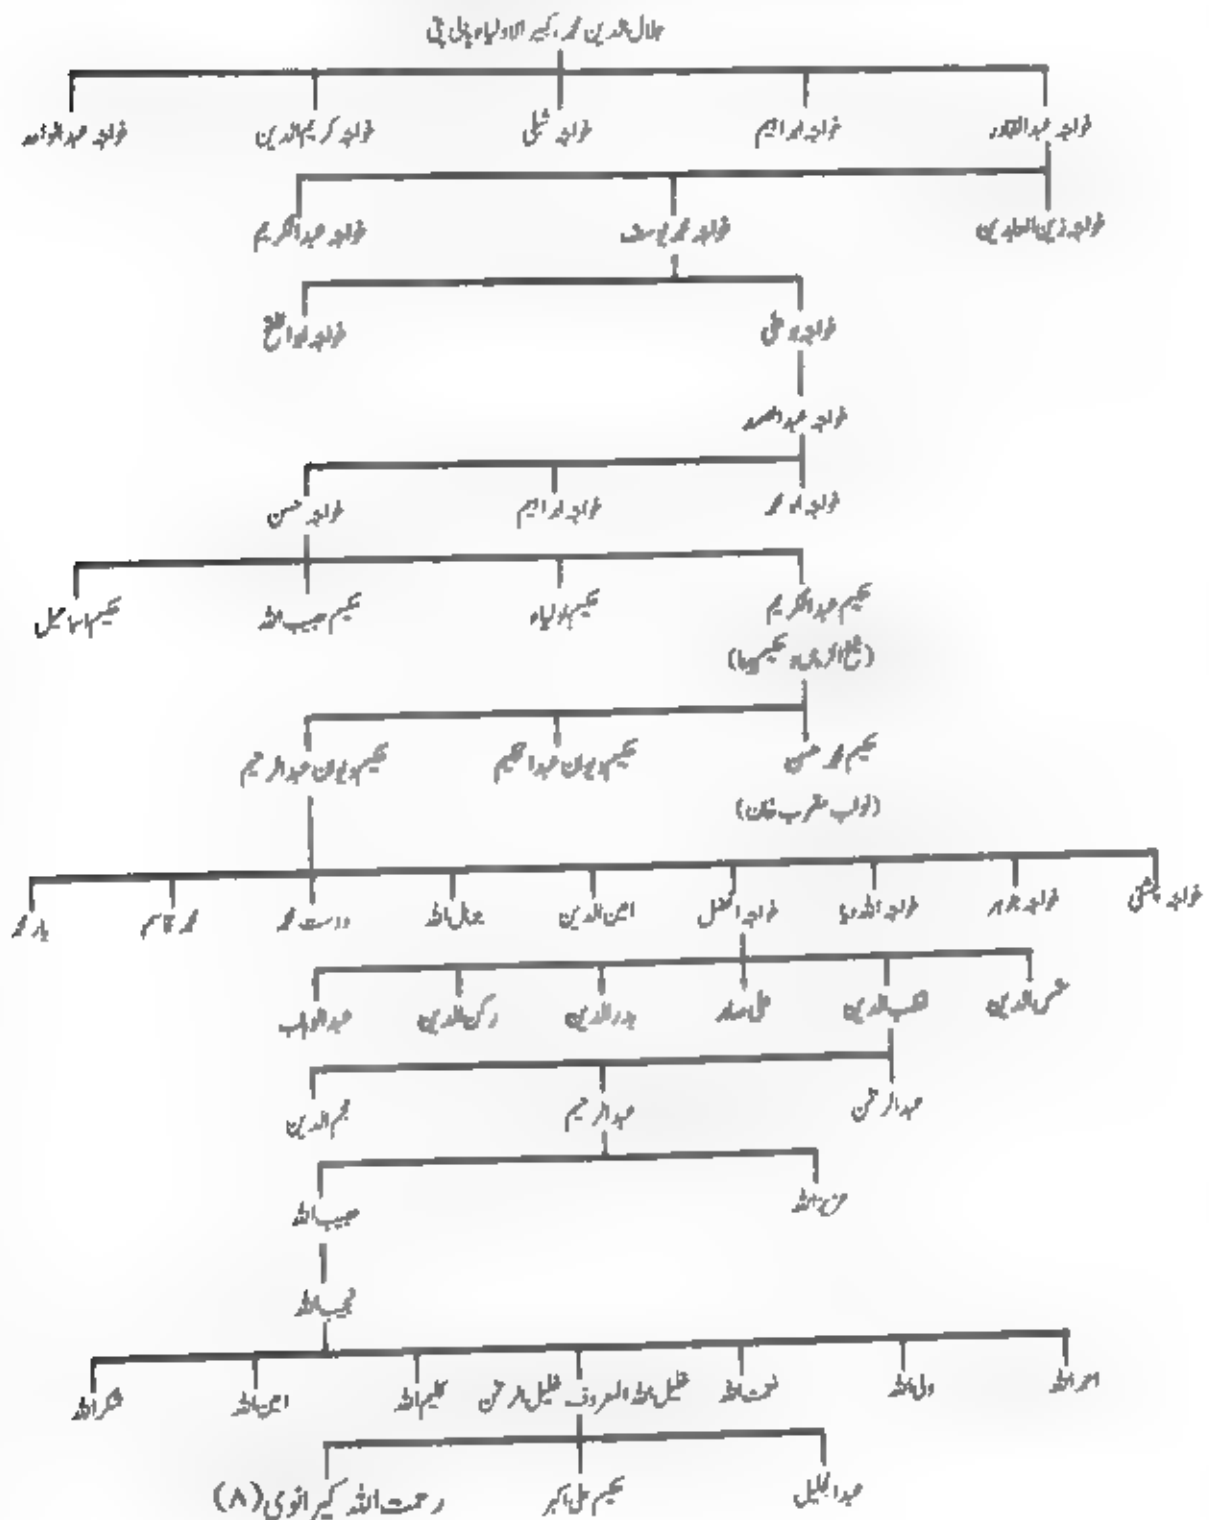 جلال الدین محمد کبیر الاولیاء پانی پتی
خواجہ عبدالقادر خواجہ ابراہیم خواجہ شبلی خواجہ کریم الدین خواجہ عبدالواحد
خواجہ زین العابدین خواجہ محمد یوسف خواجہ عبدالکریم
خواجہ بو علی خواجہ ابوالفتح
خواجہ عبدالصمد
خواجہ ابو محمد خواجہ ابراہیم خواجہ حسن
حکیم عبدالکریم حکیم اولیاء حکیم حبیب اللہ حکیم اسماعیل
(شیخ الزماں، حکیم بینا)
حکیم محمد حسن حکیم دیوان عبدالحکیم حکیم دیوان عبدالرحیم
(نواب مقرب خان)
خواجہ چشتی خواجہ جوہر خواجہ اللہ دیا خواجہ افضل امین الدین جمال اللہ دوست محمد محمد قاسم یار محمد
شمس الدین قطب الدین علی صابر بدرالدین رکن الدین عبدالوہاب
عبدالرحمٰن عبدالرحیم نجم الدین
عزیز اللہ حبیب اللہ
نجیب اللہ
امر اللہ ولی اللہ نعمت اللہ خلیل اللہ المعروف خلیل الرحمٰن کلیم اللہ امین اللہ شکر اللہ
عبدالجلیل حکیم علی اکبر رحمت اللہ کیرانوی (۸)